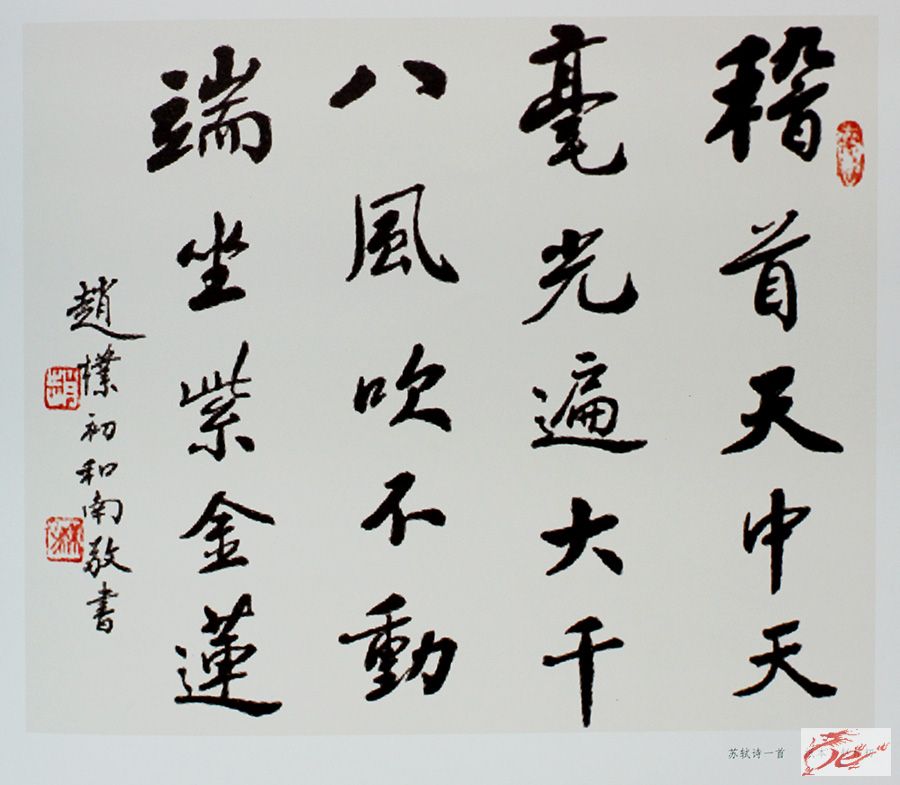 稽首天中天
毫光遍大千
八風吹不動
端坐紫金蓮
趙樸初和南敬書
苏轼诗一首